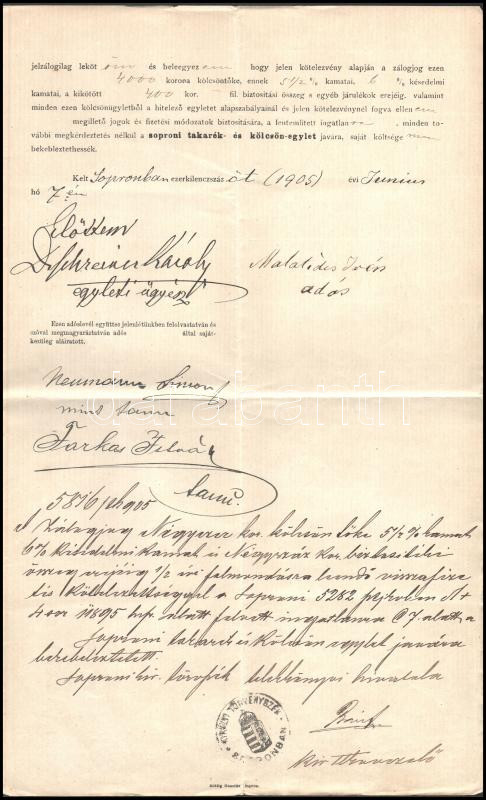 jelzálogilag leköt öm és beleegyez em hogy jelen kötelezvény alapján a zálogjog ezen
4000 korona kölcsöntőke, ennek 5½% kamatai, 6 % késedelmi
kamatai, a kikötött 400 kor. fil. biztosítási összeg s egyéb járulékok erejéig, valamint
minden ezen kölcsönügyletből a hitelező egyletet alapszabályainál és jelen kötelezvénynél fogva ellen em
megillető jogok és fizetési módozatok biztosítására, a fentemlített ingatlan ra , minden to-
vábbi megkérdeztetés nélkül a soproni takarék- és kölcsön-egylet javára, saját költsége
bekebleztethessék.
Kelt Sopronban ezerkilenczszáz öt (1905) évi Junius
hó 7-én
Előttem
Dr Schreiner Károly
egyleti ügyész
adós
Ezen adóslevél együttes jelenlétünkben felolvastatván és
szóval megmagyaráztatván adós által saját-
kezüleg aláíratott.
Neumann Simon
mint tanu
Farkas
tanu.
5816/tk 905
A Zálogjog Négyezer kor. kölcsön tőke 5½% kamat
6% késedelmi kamat s Négyszáz kor. biztositéki
összeg erejéig ½ évi felmondásra leendő visszafize
tés kötelezettséggel a Soproni 5282 A+
alatt felvett ingatlanra C 7. alatt a
Soproni takarék és kölcsön egylet javára
bekebeleztetett.
Soproni kir. törvszék telekkönyvi hivatala
KIRÁLYI TÖRVÉNYSZÉK
SOPRONBAN